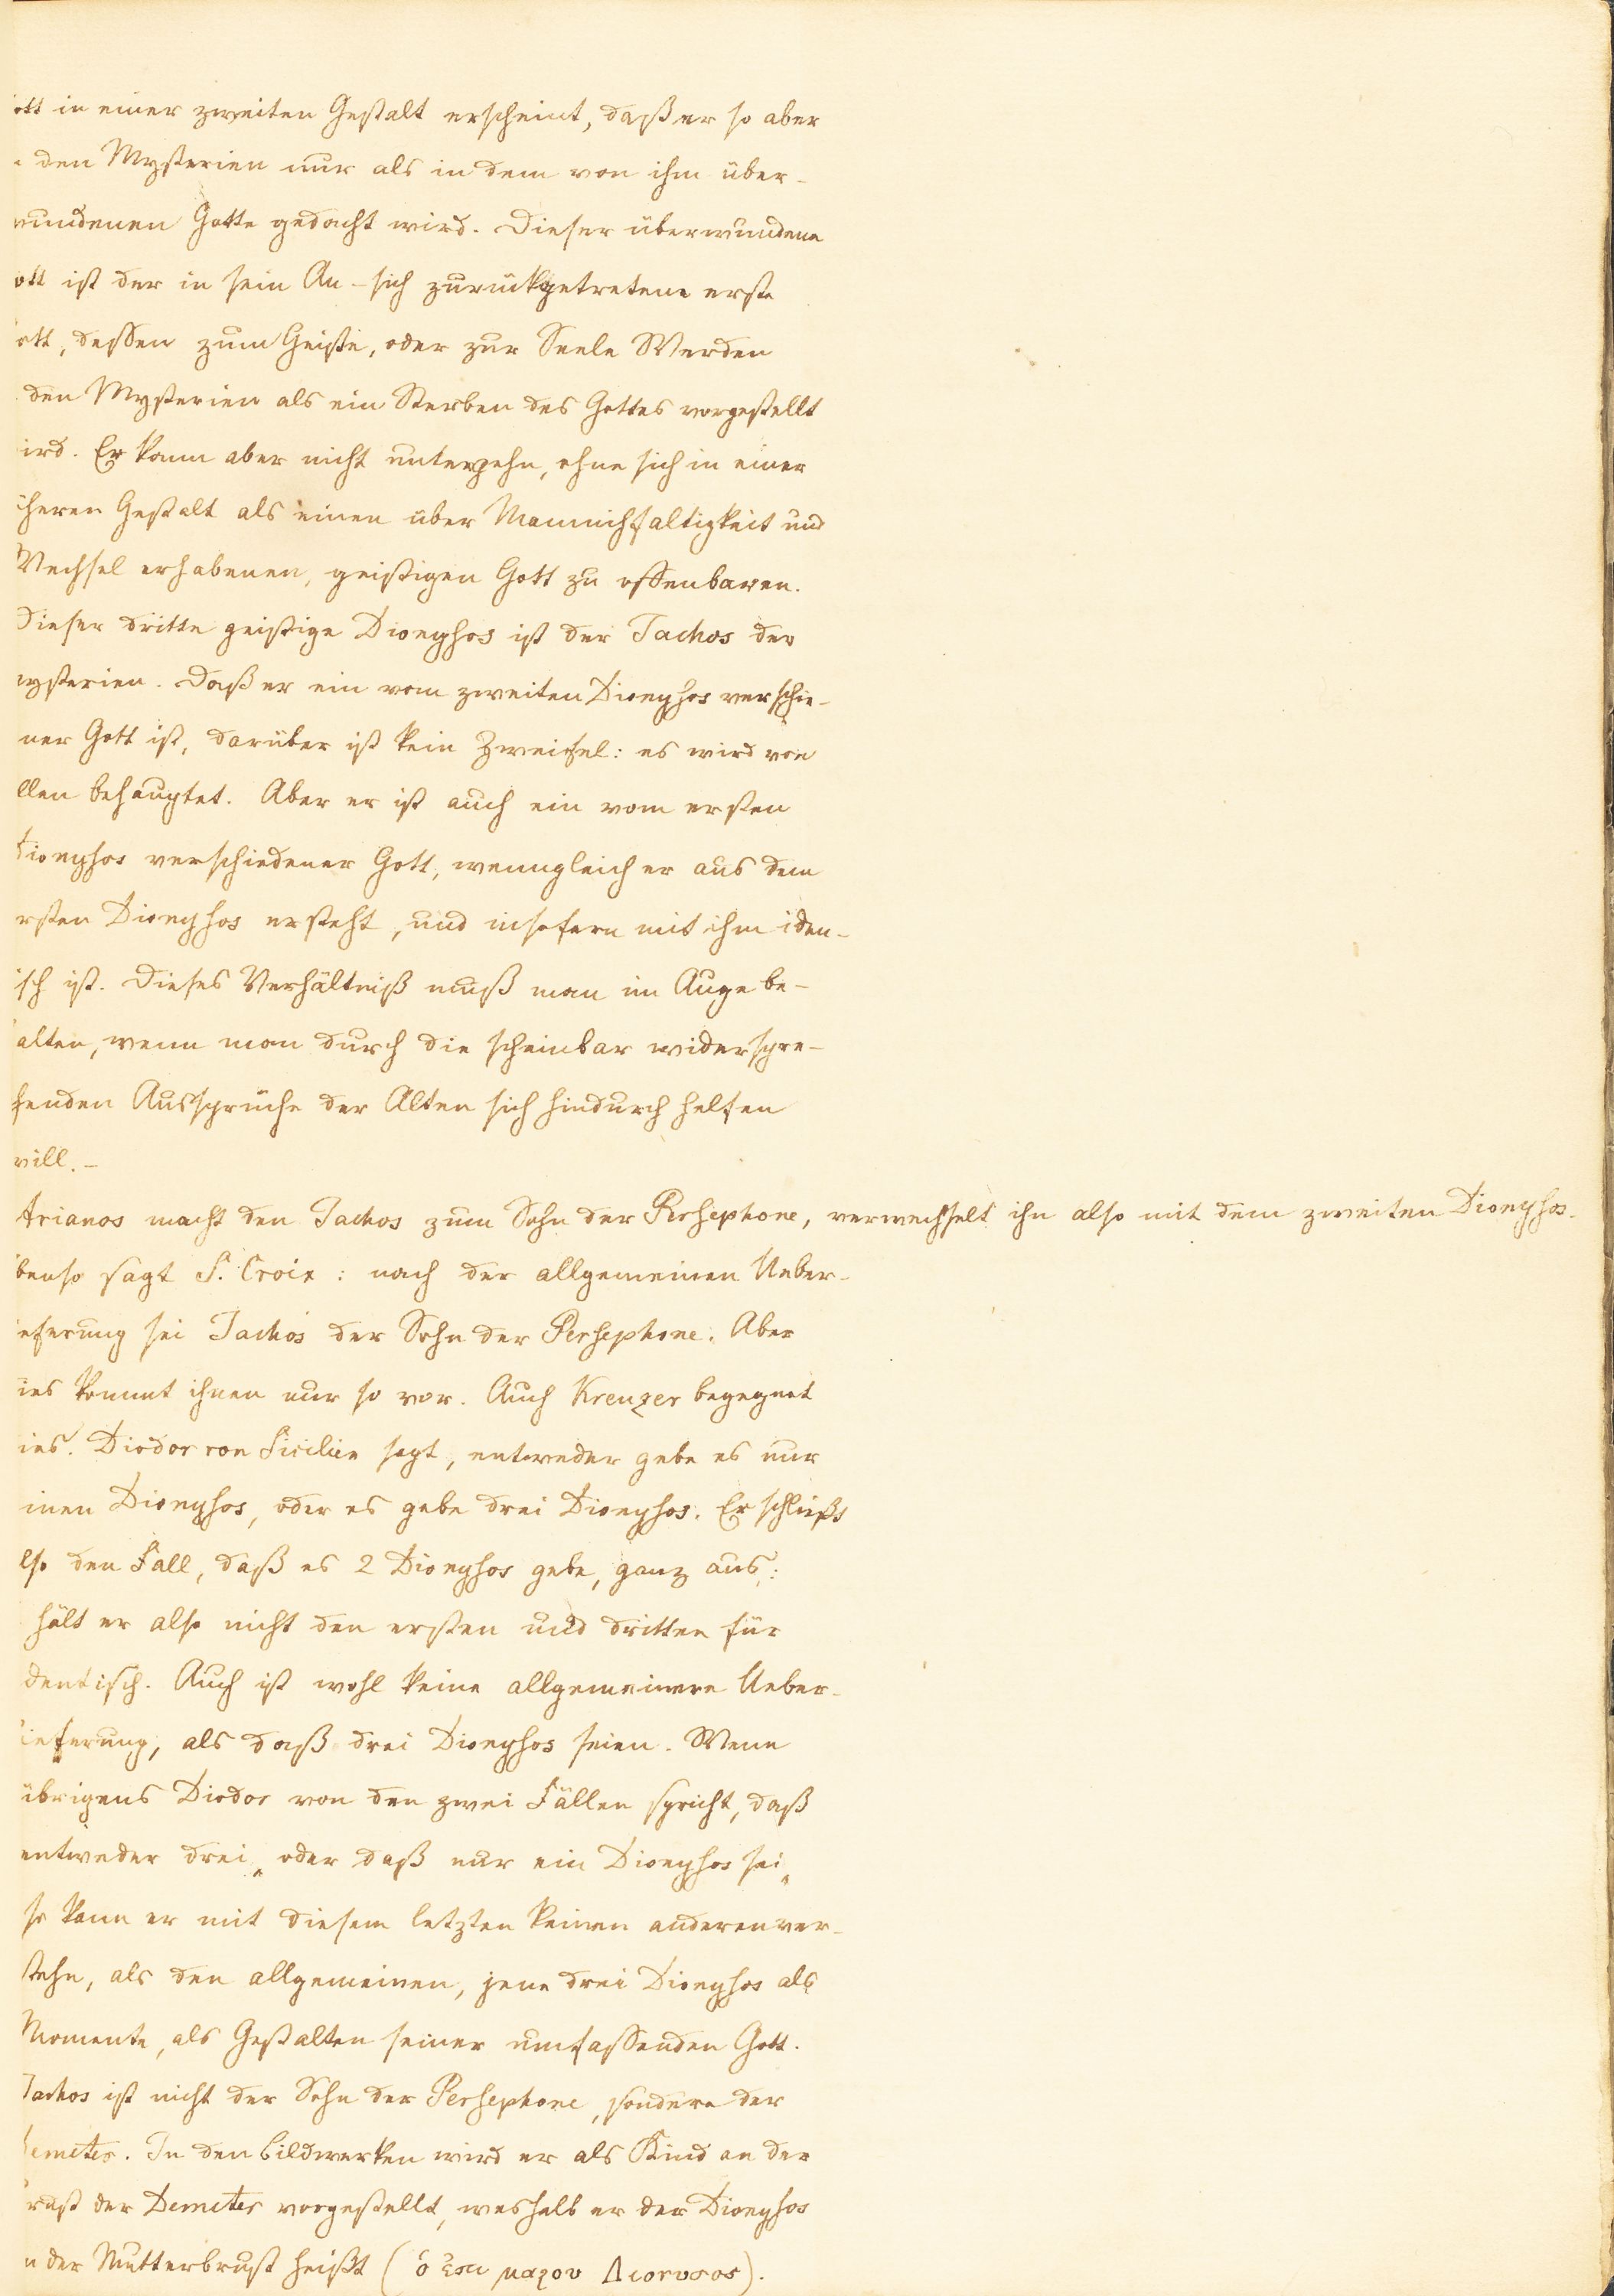 ott in einer zweiten Gestalt erscheint, daß er so aber
den Mysterien nur als in dem von ihm über-
wundenen Gotte gedacht wird. Dieser überwundene
ott ist der in sein An-sich zurückgetretene erste
ott, dessen zum Geiste, oder zur Seele Werden
den Mysterien als ein Sterben des Gottes vorgestellt
ird. Er kann aber nicht untergehn, ohne sich in einer
heren Gestalt als einen über Mannichfaltigkeit und
Wechsel erhabenen, geistigen Gott zu offenbaren.
Dieser dritte geistige Dionysos ist der Jachos der
ysterien. Daß er ein vom zweiten Dionysos verschie-
ner Gott ist, darüber ist kein Zweifel: es wird von
llen behauptet. Aber er ist auch ein vom ersten
Dionysos verschiedener Gott, wenngleich er aus dem
rsten Dionysos ersteht, und insofern mit ihm iden-
isch ist. Dieses Verhältniß muß man im Auge be-
alten, wenn man durch die scheinbar widerspre-
henden Aussprüche der Alten sich hindurch helfen
will. –
Arianos macht den Jachos zum Sohn der Persephone, verwechselt ihn also mit dem zweiten Dionysos.
benso sagt S. Croix: nach der allgemeinen Ueber-
ieferung sei Jachos der Sohn der Persephone. Aber
ies kommt ihnen nur so vor. Auch Kreuzer begegnet
ies. Diodor von Sicilien sagt, entweder gebe es nur
inen Dionysos, oder es gebe drei Dionysos. Er schließt
lso den Fall, daß es 2 Dionysos gebe, ganz aus:
hält er also nicht den ersten und dritten für
dentisch. Auch ist wohl keine allgemeinere Ueber-
lieferung, als daß drei Dionysos seien. Wenn
übrigens Diodor von den zwei Fällen spricht, daß
entweder drei, oder daß nur ein Dionysos sei,
so kann er mit diesem letzten keinen anderen ver-
stehn, als den allgemeinen, jene drei Dionysos als
Momente, als Gestalten seiner umfassenden Gott.
Jachos ist nicht der Sohn der Persephone, sondern der
Demeter. In den Bildwerken wird er als Kind an der
rust der Demeter vorgestellt, weshalb er der Dionysos
n der Mutterbrust heißt (ὁ ἐπι μαζον Διονυσος).